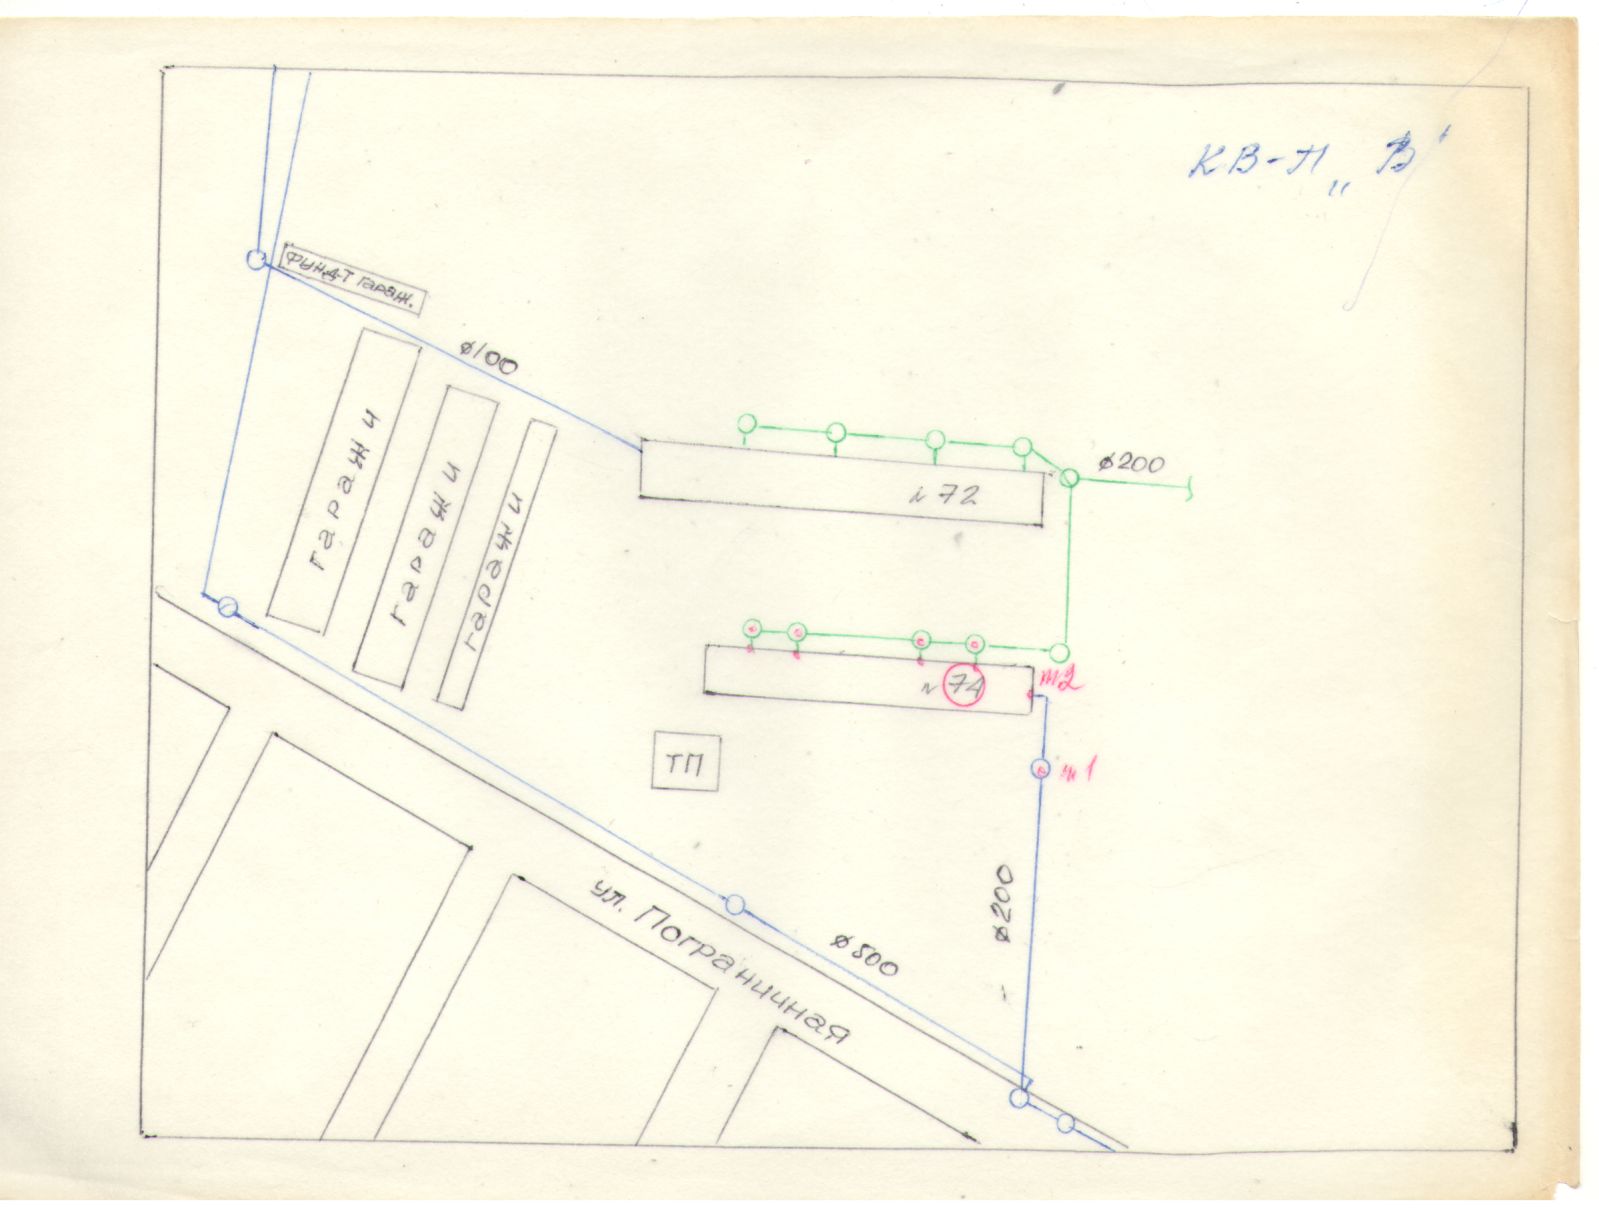 КВ-Л „В“
ФУНД-Т гараж.
ø100
гаражи
гаражи
гаражи
ø200
№72
№74
т2
т1
ТП
ø200
ø500
ул. Пограничная